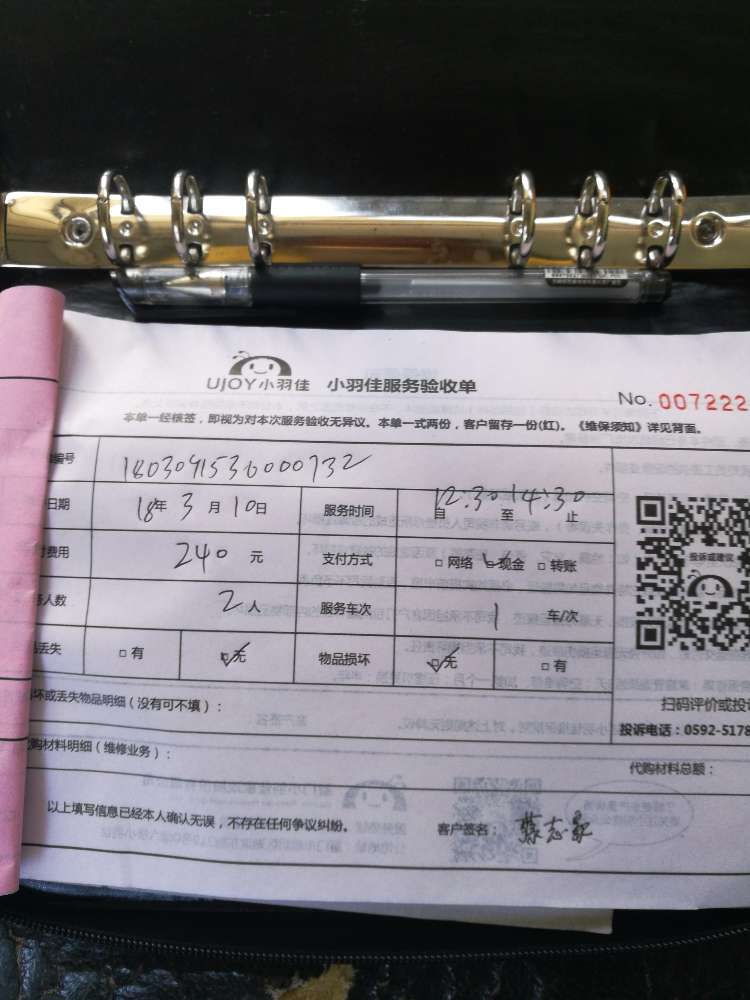 UJOY小羽佳 小羽佳服务验收单
No. 007222
本单一经核签，即视为对本次服务验收无异议。本单一式两份，客户留存一份(红)。《维保须知》详见背面。
编号 1803041536000732
日期 18年 3月 10日 服务时间 自12:30至14:30止
费用 240 元 支付方式 □网络 ☑现金 □转账
人数 2人 服务车次 1 车/次
丢失 □有 ☑无 物品损坏 ☑无 □有
投诉或建议
坏或丢失物品明细（没有可不填）：
扫码评价或投诉
投诉电话：0592-5178
代购材料明细（维修业务）：
代购材料总额：
以上填写信息已经本人确认无误，不存在任何争议纠纷。
客户签名：